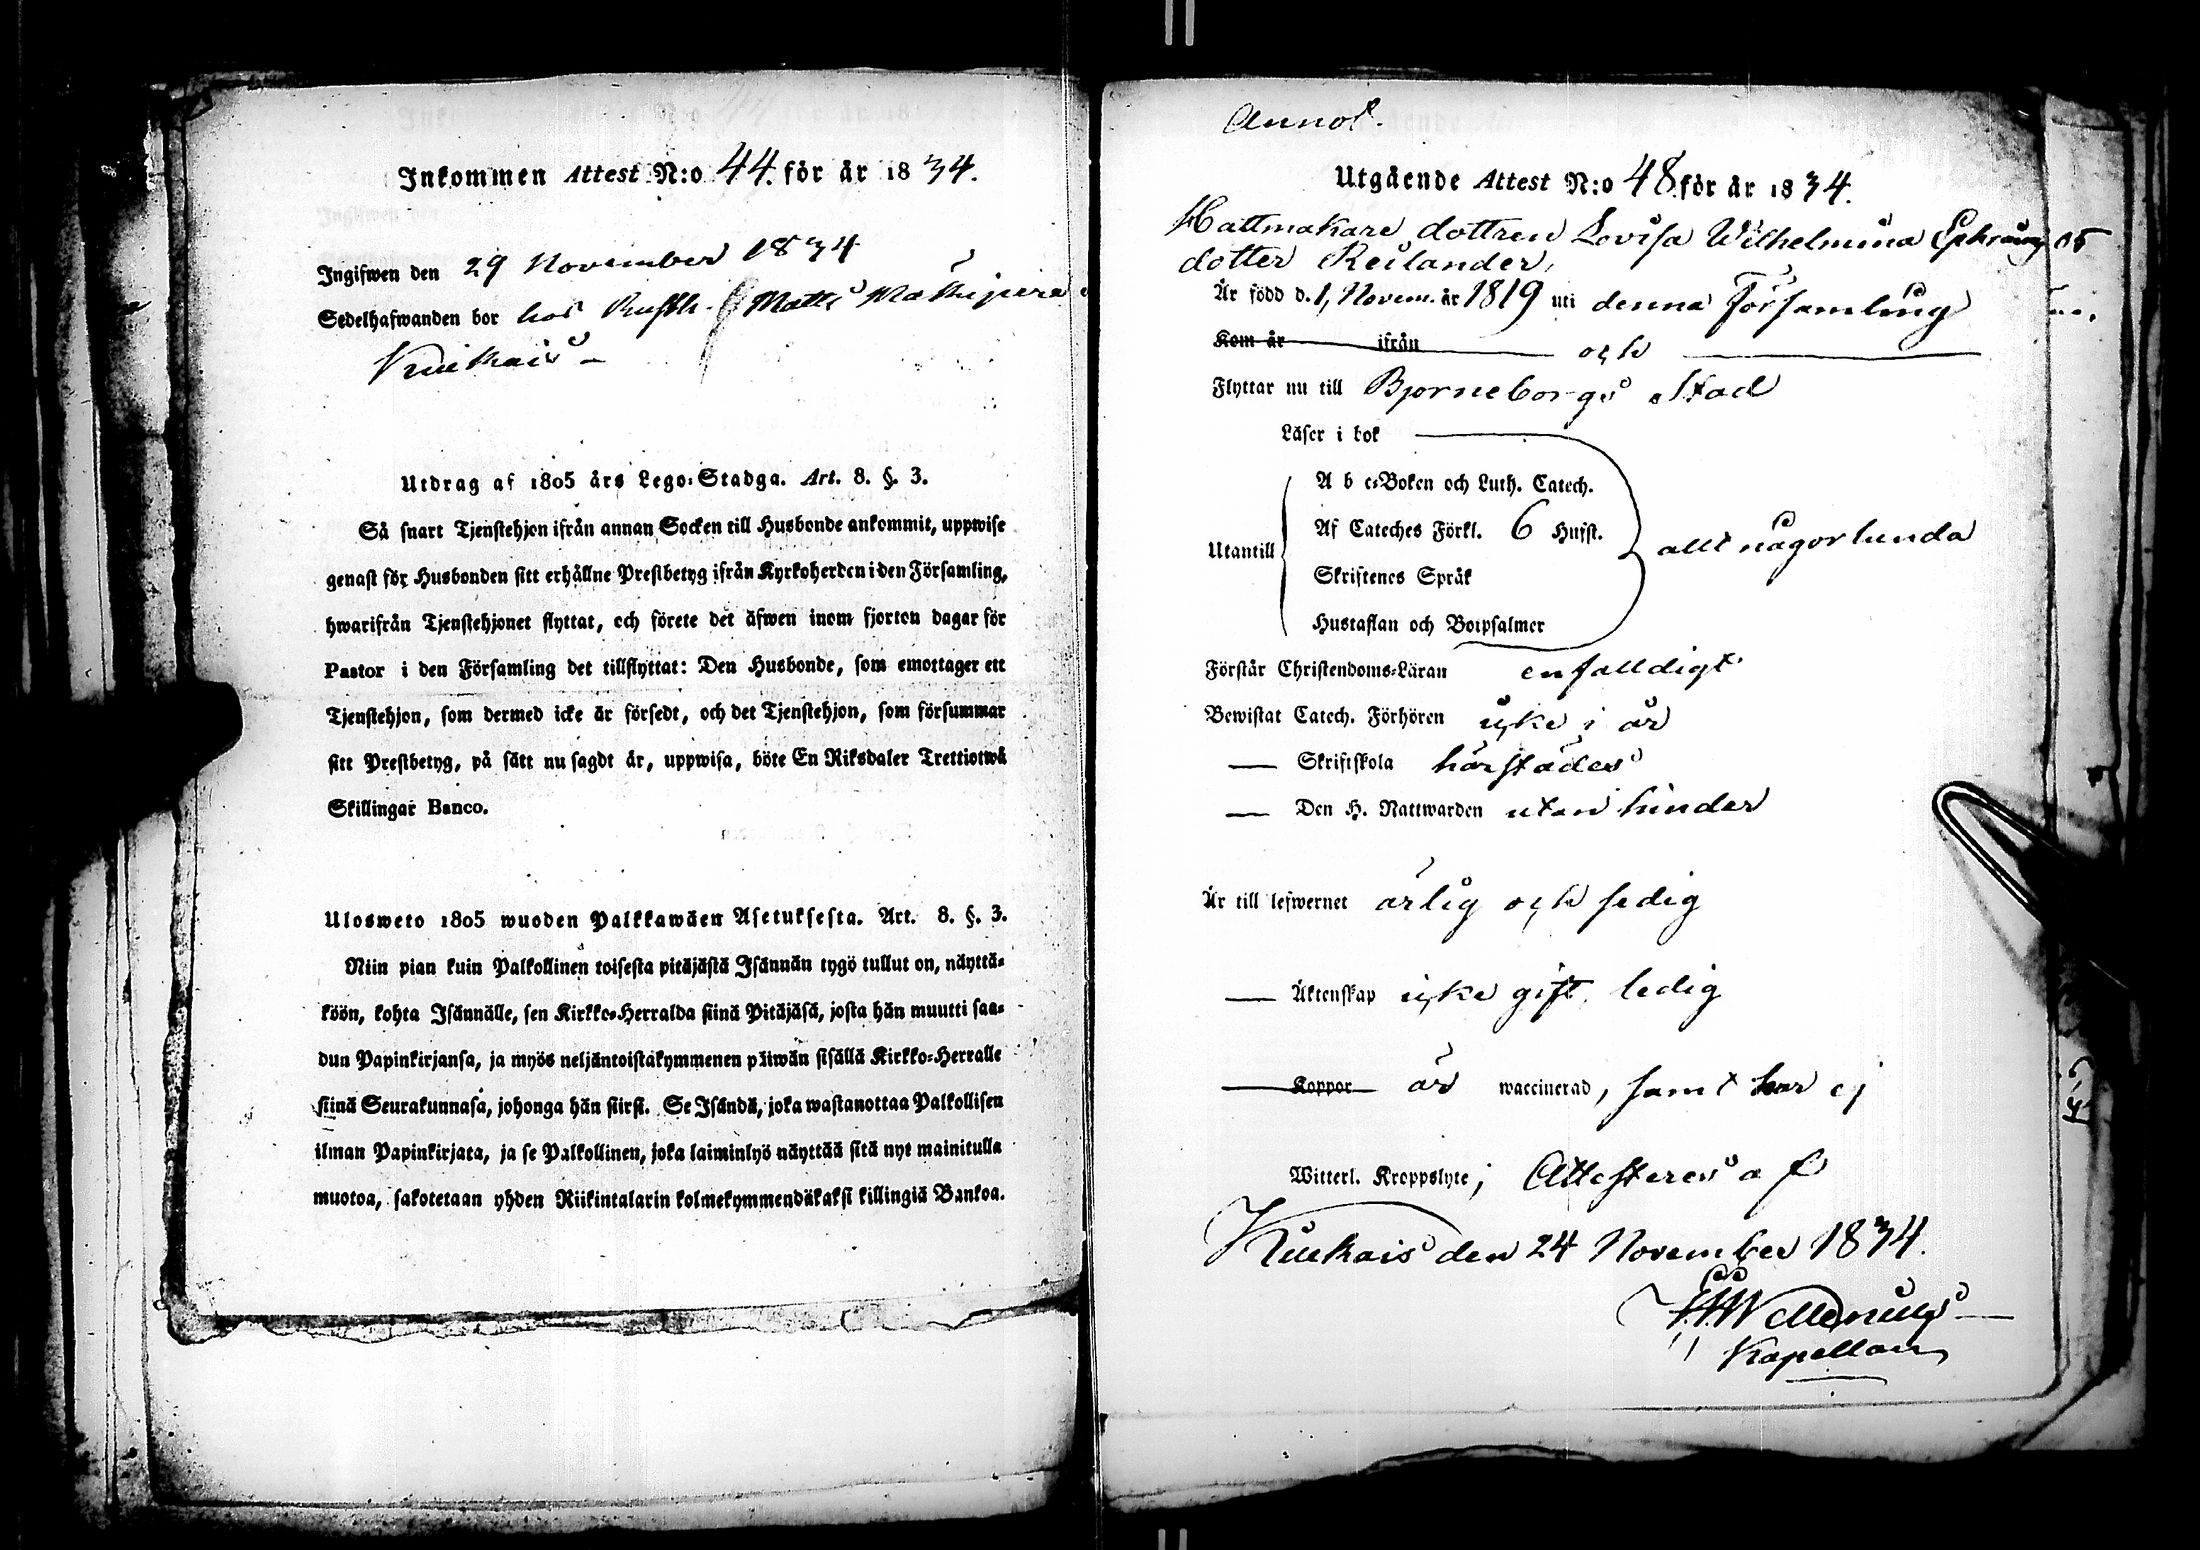 Inkommen Attest N:o 44. för år 1834.
Ingifwen den 29 November 1834
Sedelhafwanden bor hos Rusth. Matts
Kiukais
Utdrag af 1805 års Lego-Stadga. Art. 8. §. 3.
Så snart Tjenstehjon ifrån annan Socken till Husbonde ankommit, uppwise
genast för Husbonden sitt erhållne Prestbetyg ifrån Kyrkoherden i den Församling,
hwarifrån Tjenstehjonet flyttat, och förete det äfwen inom fjorton dagar för
Pastor i den Församling det tillflyttat: Den Husbonde, som emottager ett
Tjenstehjon, som dermed icke är försedt, och det Tjenstehjon, som försummar
sitt Prestbetyg, på sätt nu sagdt är, uppwisa, böte En Riksdaler Trettiotwå
Skillingar Banco.
Ulosweto 1805 wuoden Palkkawäen Asetuksesta. Art. 8. §. 3.
Niin pian kuin Palkollinen toisesta pitäjästä Isännän tygö tullut on, näyttä-
köön, kohta Isännälle, sen Kirkko-Herralda siinä Pitäjäsä, josta hän muutti saa-
dun Papinkirjansa, ja myös neljäntoistakymmenen päiwän sisällä Kirkko-Herralle
siinä Seurakunnasa, johonga hän siirsi. Se Isändä, joka wastanottaa Palkollisen
ilman Papinkirjata, ja se Palkollinen, joka laiminlyö näyttää sitä nyt mainitulla
muotoa, sakotetaan yhden Riikintalarin kolmekymmendäkaksi killingiä Bankoa.
Annot.
Utgående Attest N:o 48 för år 1834.
Hattmakare dottren Lovisa Wilhelmina Ephraims
dotter Reilander,
Är född d. 1, Novem. år 1819 uti denna Församling
Kom år ifrån och
Flyttar nu till Bjorneborgs Stad
Läser i bok
A b c-Boken och Luth. Catech.
Utantill Af Cateches Förkl. 6 Hufst. allt någorlunda
Skriftenes Språk
Hustaflan och Botpsalmer
Förstår Christendoms-Läran enfalldigt
Bewistat Catech. Förhören icke i år
— Skriftskola härstädes
— Den H. Nattwarden utan hinder
Är till lefwernet ärlig och sedig
— Äktenskap icke gift, ledig
Koppor är waccinerad, samt har ej
Witterl. Kroppslyte; Attesteres af
Kiukais den 24 November 1834.
Kapellan